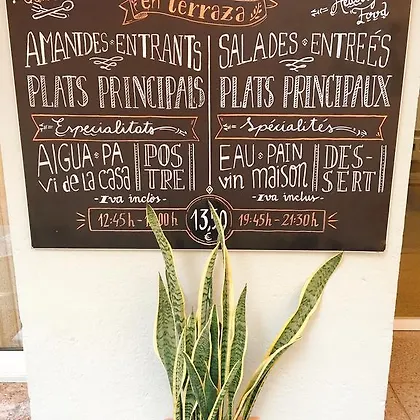 en terraza
Healthy
Food
AMANIDES • ENTRANTS
PLATS PRINCIPALS
Especialitats
AIGUA • PA
vi de la casa
POS
TRE
- Iva inclòs -
SALADES • ENTREÉS
PLATS PRINCIPAUX
Spécialités
EAU • PAIN
vin maison
DES-
SERT
- Iva inclus -
12:45h -
€
19:45h - 21:30h